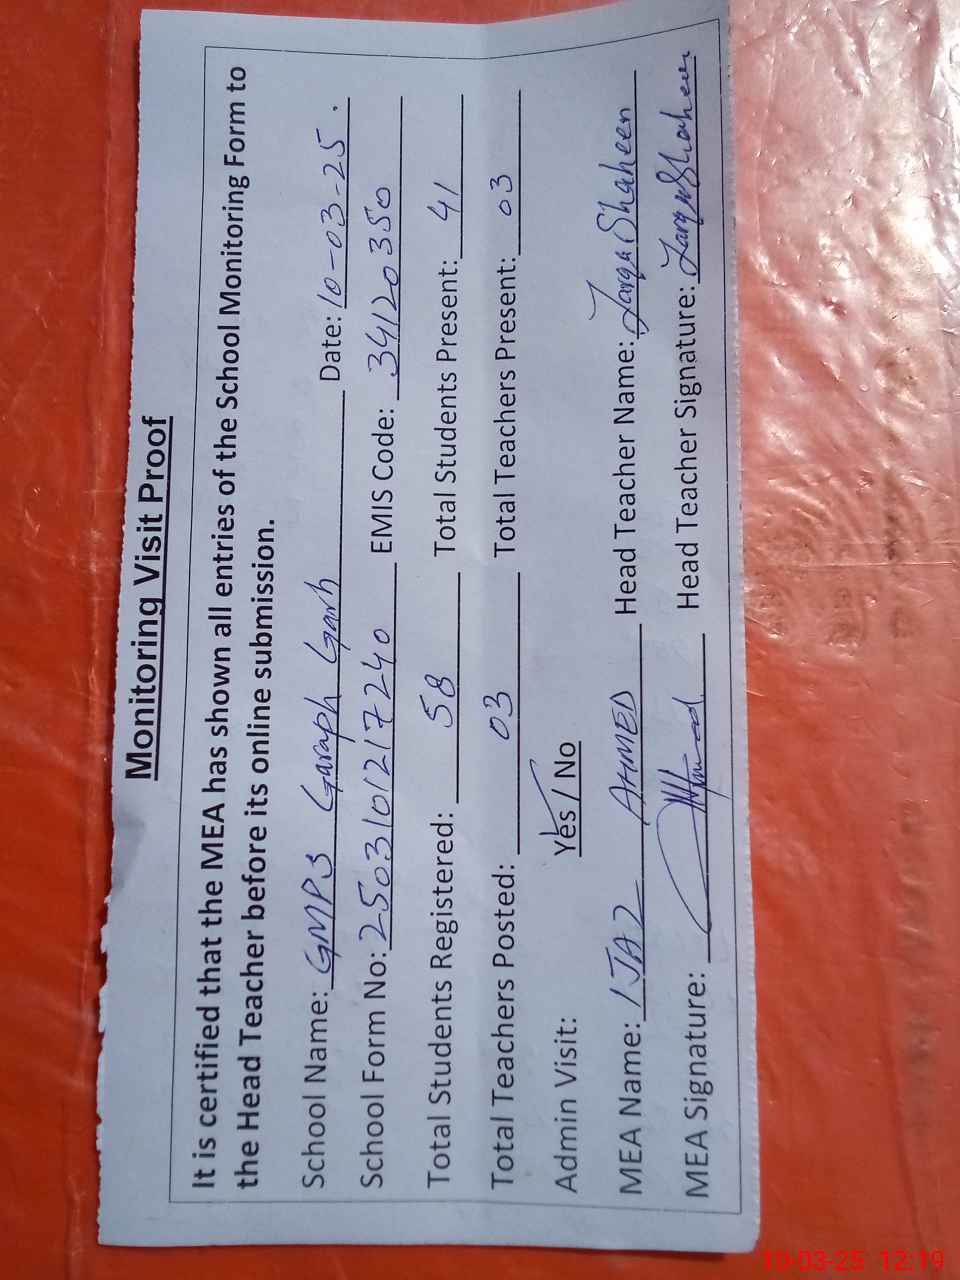 Monitoring Visit Proof
It is certified that the MEA has shown all entries of the School Monitoring Form to
the Head Teacher before its online submission.
School Name: GMPS Garaph Garh Date: 10-03-25.
School Form No: 2503101217240 EMIS Code: 34120350
Total Students Registered: 58 Total Students Present: 41
Total Teachers Posted: 03 Total Teachers Present: 03
Admin Visit: Yes / No
MEA Name: IJAZ AHMED Head Teacher Name: Zarqa Shaheen
MEA Signature: Head Teacher Signature: Zarqa Shaheen
10-03-25 12:19